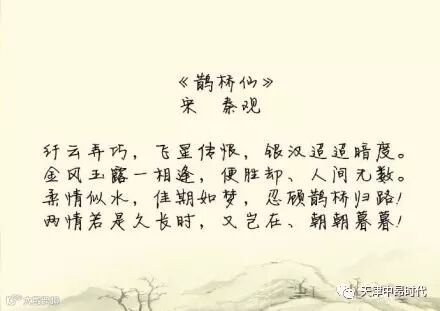 《鹊桥仙》
宋 秦观
纤云弄巧，飞星传恨，银汉迢迢暗度。
金风玉露一相逢，便胜却、人间无数。
柔情似水，佳期如梦，忍顾鹊桥归路！
两情若是久长时，又岂在、朝朝暮暮！
天津中昂时代